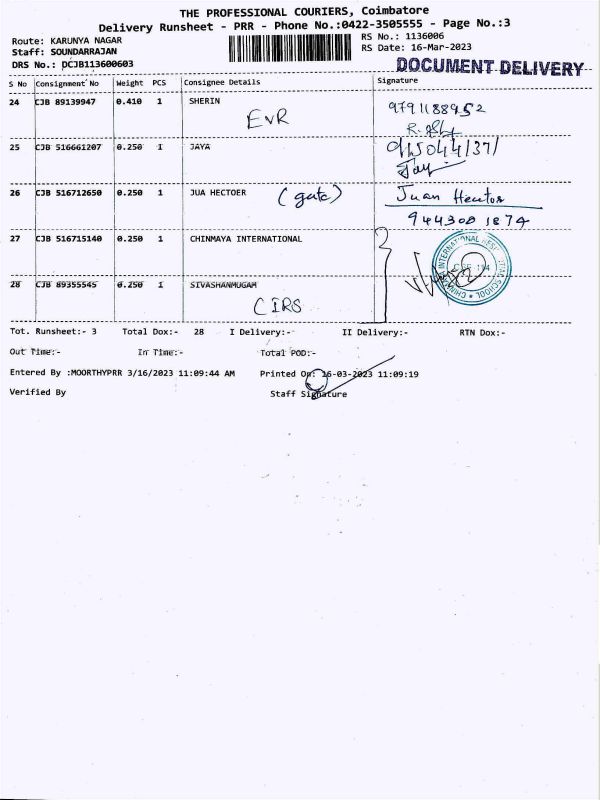 THE PROFESSIONAL COURIERS, Coimbatore
Delivery Runsheet - PRR - Phone No.:0422-3505555 - Page No.:3
Route: KARUNYA NAGAR
Staff: SOUNDARRAJAN
DRS No.: DCJB113600603
RS No.: 1136006
RS Date: 16-Mar-2023
DOCUMENT DELIVERY
S No Consignment No Weight PCS Consignee Details Signature
24 CJB 89139947 0.410 1 SHERIN
EVR
25 CJB 516661207 0.250 1 JAYA
26 CJB 516712650 0.250 1 JUA HECTOER (gate) Juan Hector
944308 1874
27 CJB 516715140 0.250 1 CHINMAYA INTERNATIONAL
28 CJB 89355545 0.250 1 SIVASHANMUGAM
CIRS
Tot. Runsheet:- 3 Total Dox:- 28 I Delivery:- II Delivery:- RTN Dox:-
Out Time:- In Time:- Total POD:-
Entered By :MOORTHYPRR 3/16/2023 11:09:44 AM Printed On: 16-03-2023 11:09:19
Verified By Staff Signature